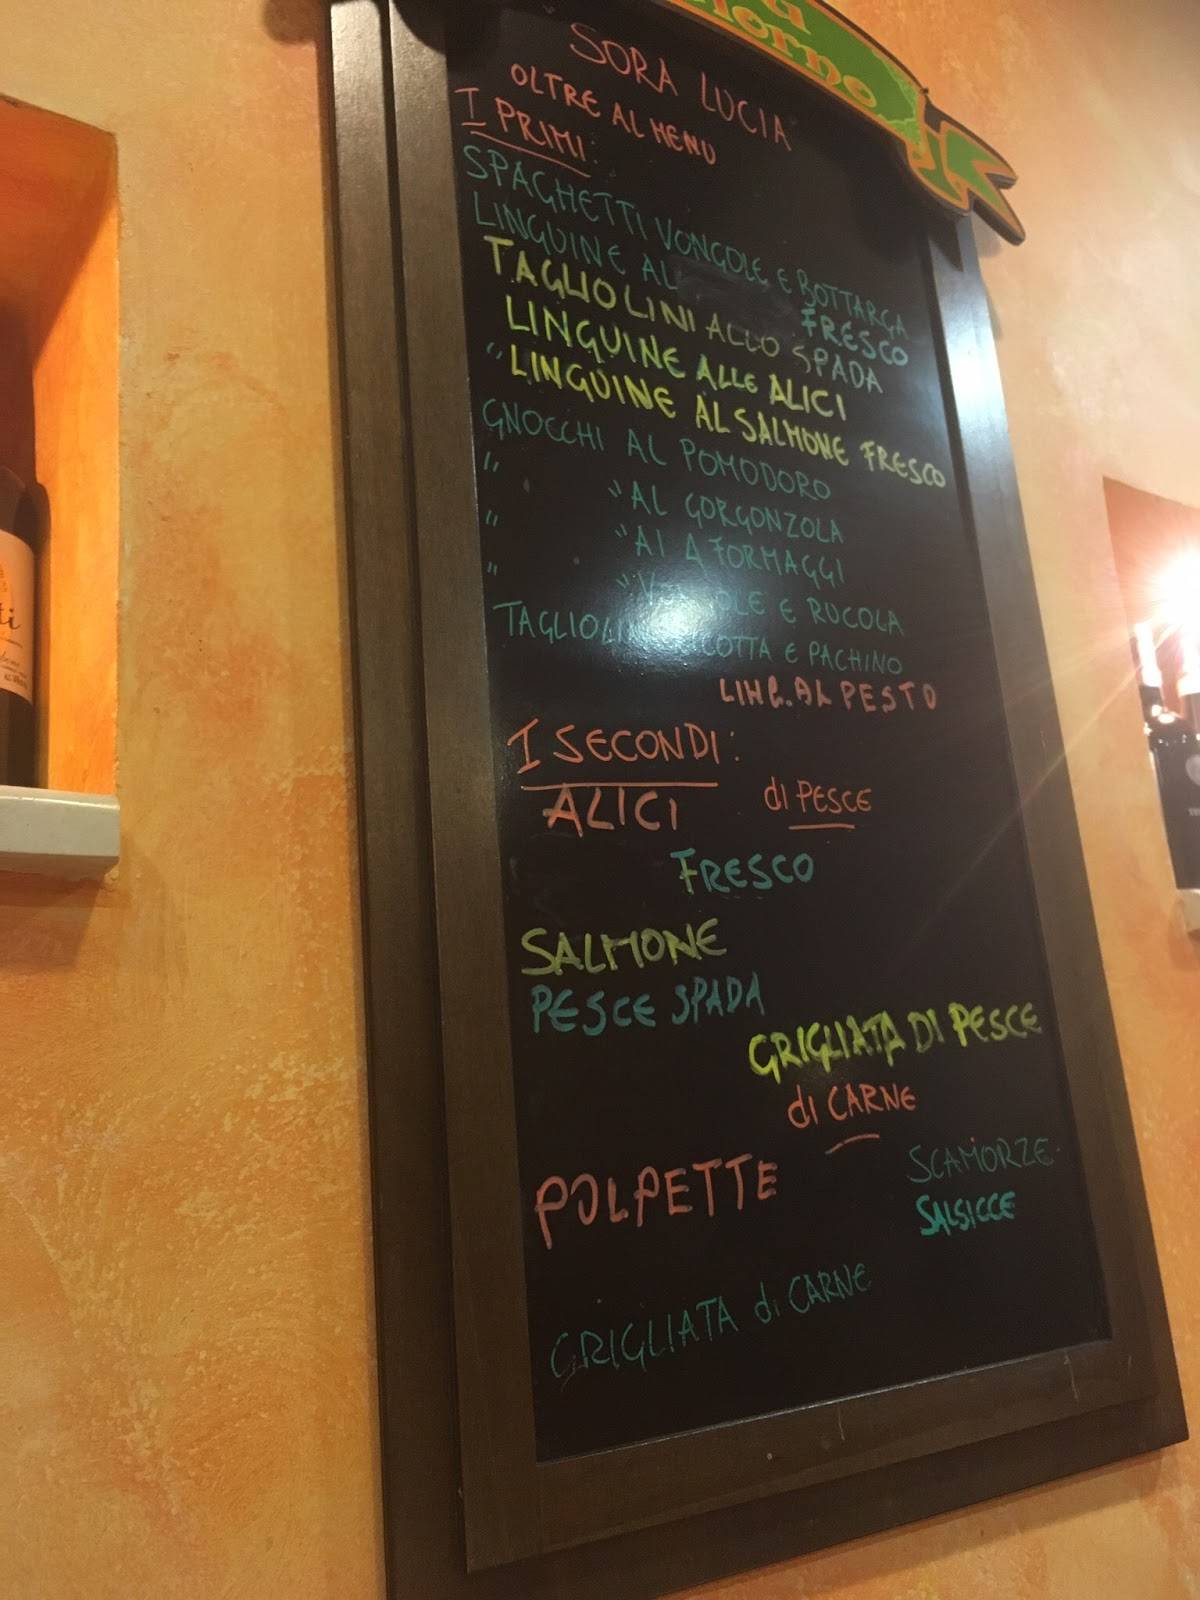 SORA LUCIA
OLTRE AL MENU
I PRIMI:
SPAGHETTI VONGOLE E BOTTARGA
LINGUINE AL FRESCO
TAGLIOLINI ALLO SPADA
LINGUINE ALLE ALICI
" LINGUINE AL SALMONE FRESCO
GNOCCHI AL POMODORO
" " AL GORGONZOLA
" " AI 4 FORMAGGI
" " E RUCOLA
E PACHINO
LING. AL PESTO
I SECONDI:
ALICI di PESCE
FRESCO
SALMONE
PESCE SPADA
GRIGLIATA DI PESCE
di CARNE
SCAMORZE
POLPETTE
SALSICCE
GRIGLIATA di CARNE